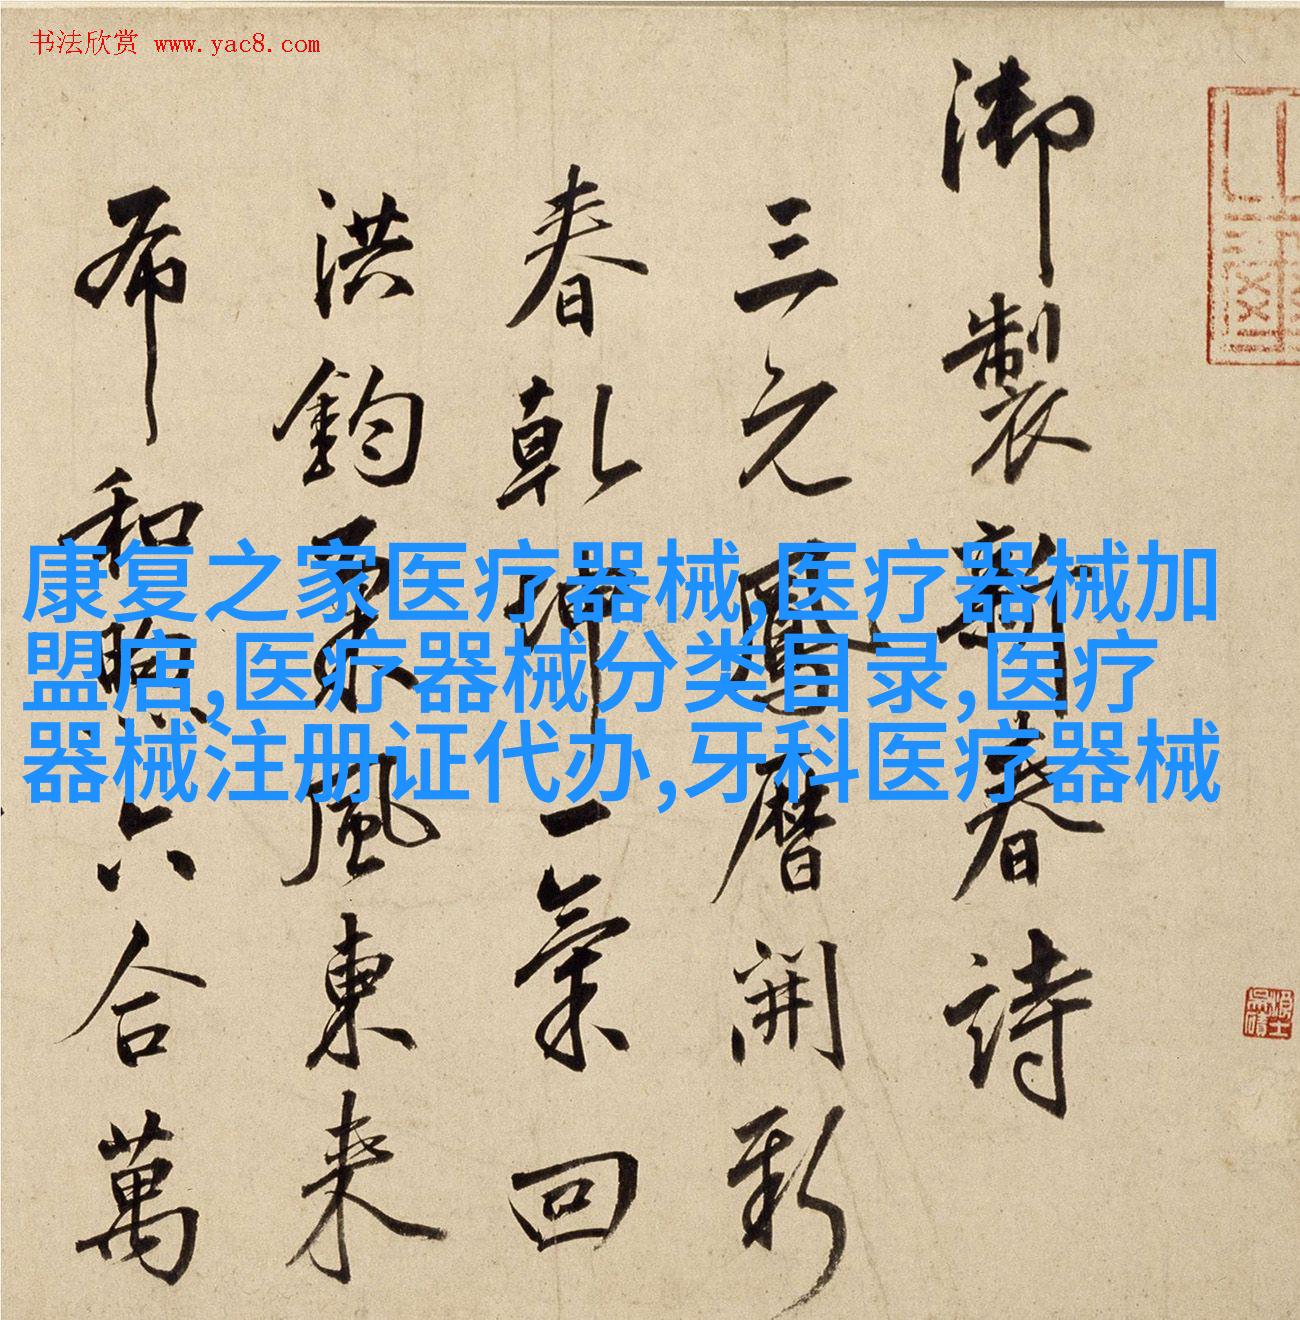 书法欣赏 www.yac8.com
御製新春詩
三元鳳曆開新
春乾坤一氣回
洪鈞風東来
布和煦六合萬
康复之家医疗器械,医疗器械加
盟店,医疗器械分类目录,医疗
器械注册证代办,牙科医疗器械